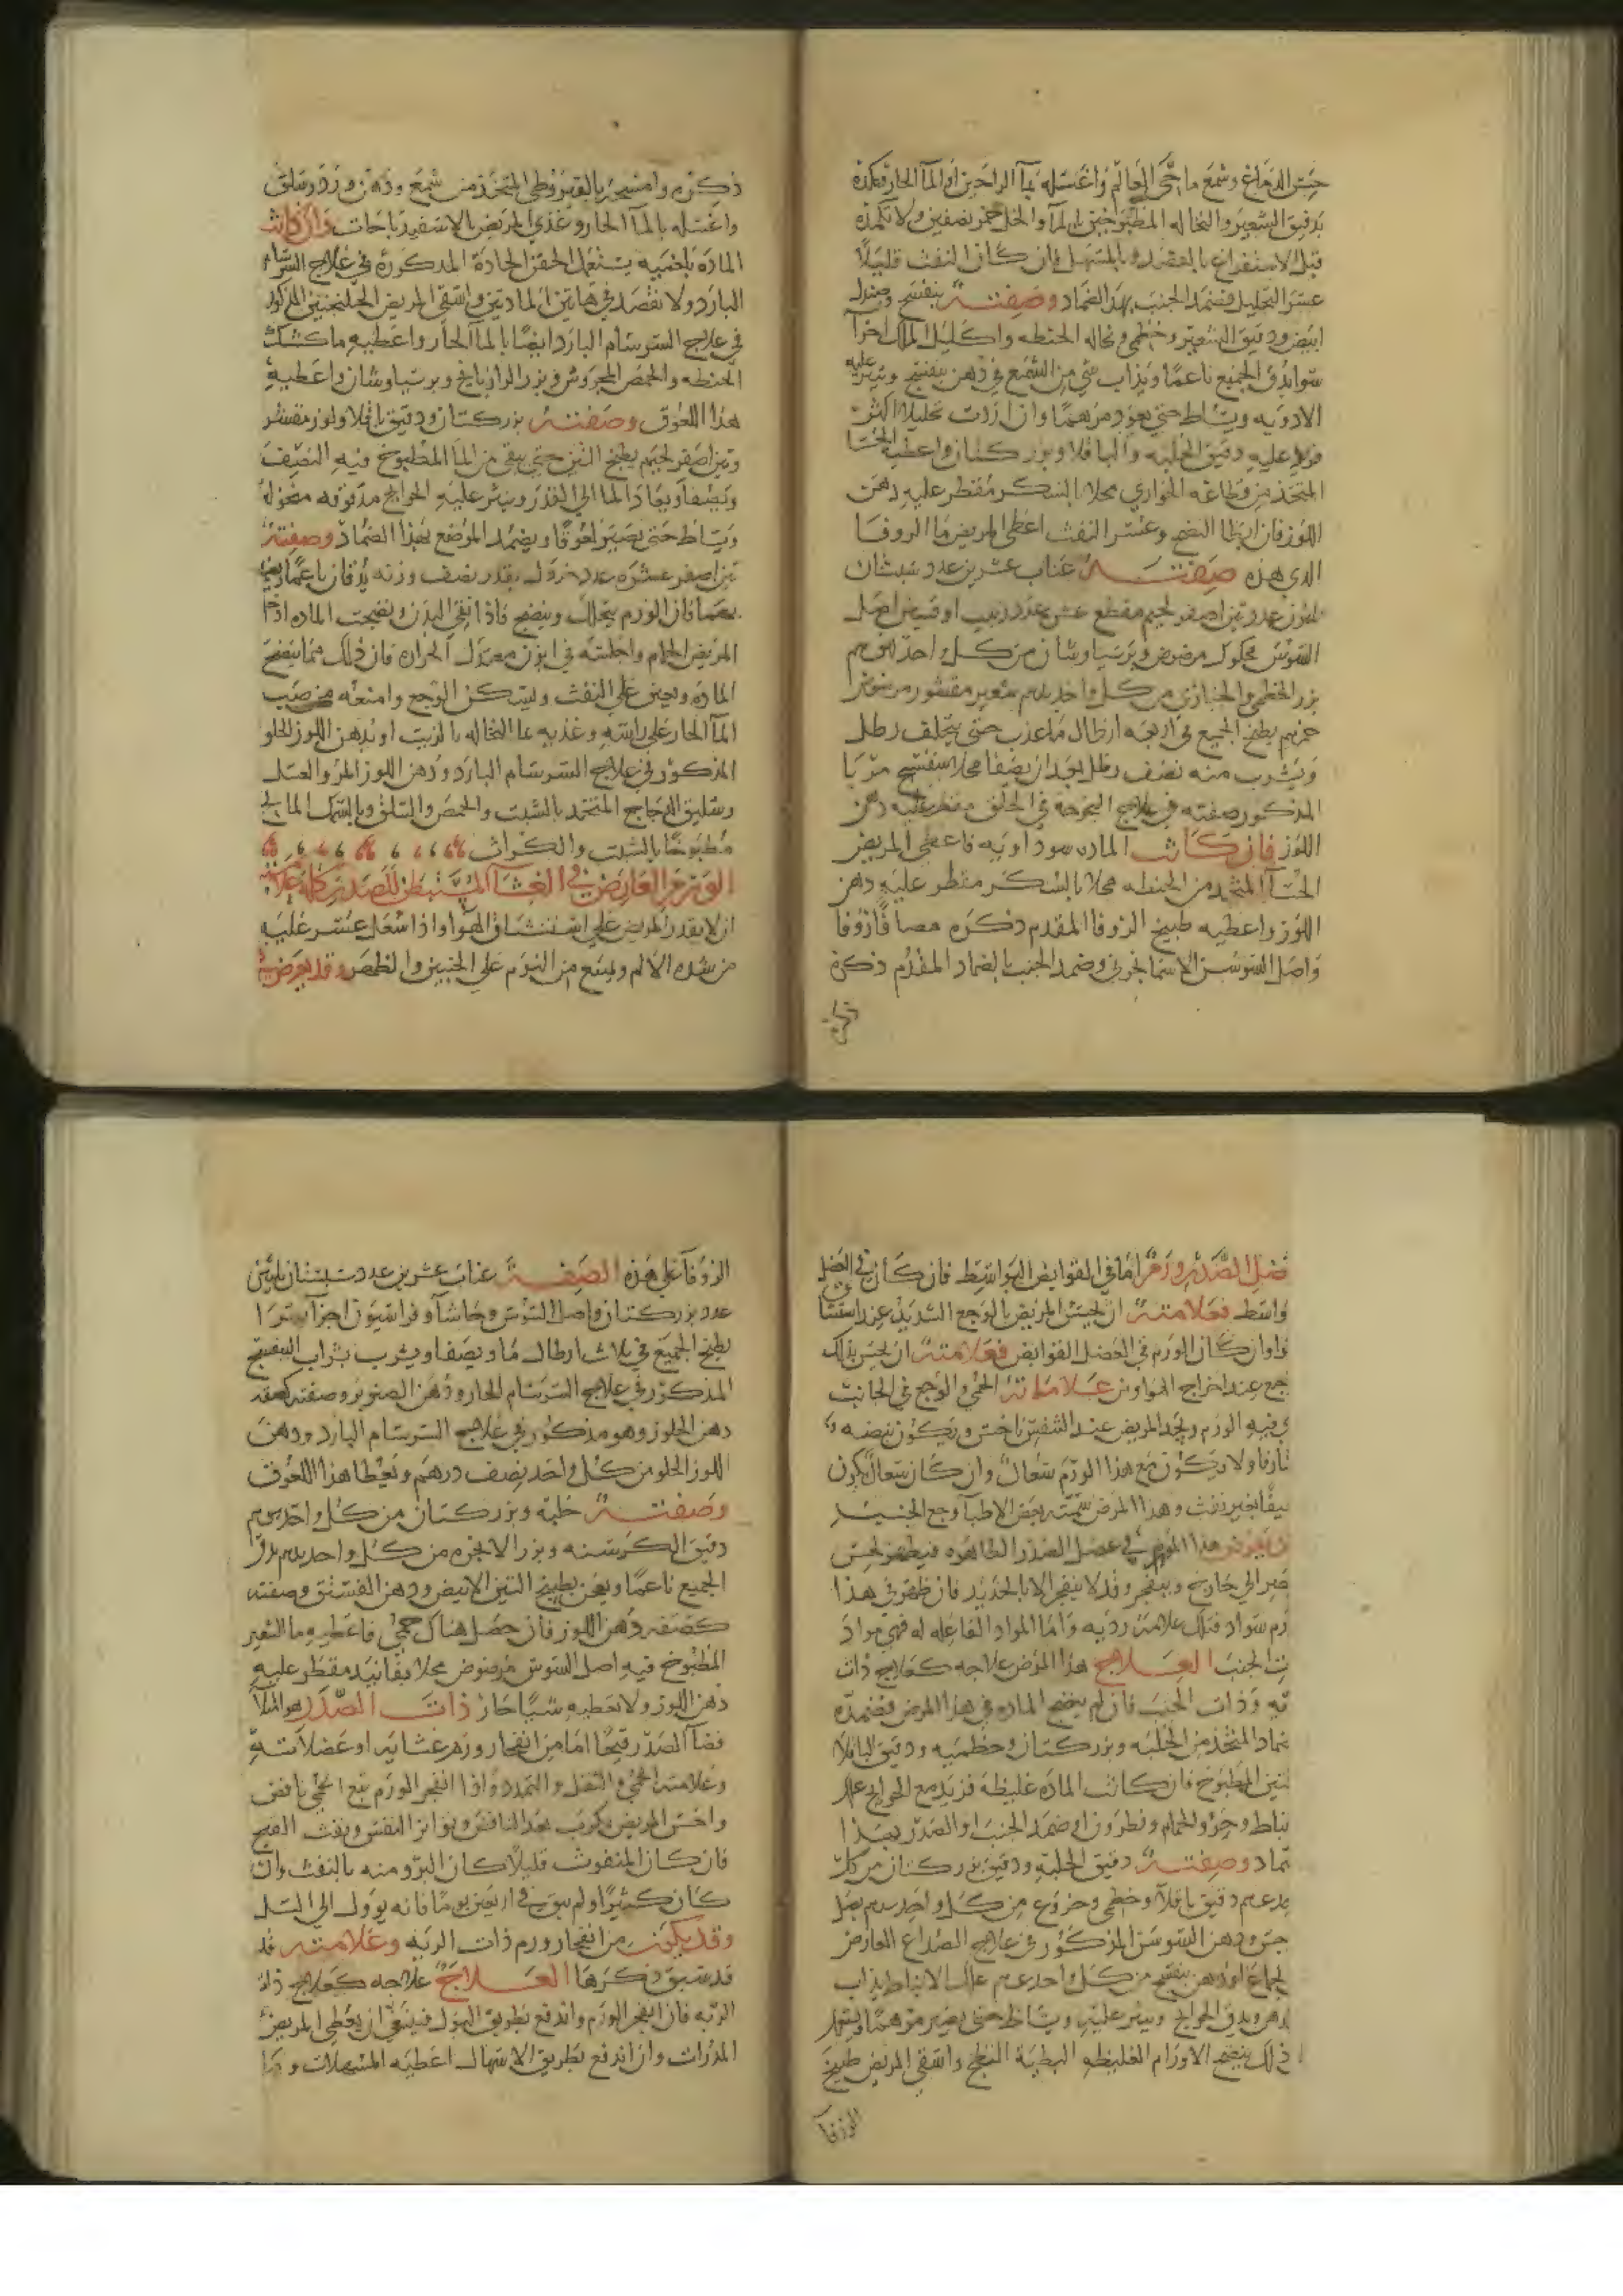 بدقيق الشعير والنخاله المطبوخين بالمآ والخل خمر نصفين ولا تكمده
قبل الاستفراغ بالفصد وبالمسهل فان كان النفث قليلًا
عسر التحليل فضمد الجنب بهذا الضماد وصفته بنفسج وصندل
ابيض ودقيق الشعير وخطمي ونخاله الحنطه واكليل الملك اجزآ
سوا يدق الجميع ناعمًا ويذاب شي من الشمع في دهن بنفسج وينثر عليه
الادويه ويساط حتي يعود مرهمًا وان اردت تحليلًا اكثر
فزد عليه دقيق الحلبه والباقلا وبزر كتان واعطيه الحسا
المتخذ من الحواري محلا بالسكر مقطر عليه دهن
اللوز فان ابطا النضج وعسر النفث اعطي المريض مآ الزوفا
الذي هذه صفته عناب عشرين عدد سبستان
عدد تين اصفر لحيم مقطع عشر عدد زبيب اوقيتين اصل
السوس محكوك مرضوض وبرسياوشان من كل احد
بزر الخطمي والخبازي من كل واحد شعير مقشور مرضوض
يطبخ الجميع في اربعه ارطال مآ عذب حتي يتخلف رطل
ويشرب منه نصف رطل بعد ان يصفا محلا بنفسج مربا
المذكور صفته في علاج البحوحه في الحلق مقطر عليه دهن
اللوز فان كانت الماده سوداويه فاعطي المريض
الحسآ المتخذ من الحنطه محلا بالسكر مقطر عليه دهن
اللوز واعطيه طبيخ الزوفا المقدم ذكره مضافًا زوفا
واصل السوسن الاسمانجوني وضمد الجنب بالضماد المقدم ذكره
ذكره وامسحه بالقيروطي المتخذ من شمع ودهن ورد وسلق
واغسله بالمآ الحار وغذي المريض بالاسفيدباجات وان كانت
الماده بلغميه يستعمل الحقن الحادة المذكورة في علاج السرسام
البارد ولا تفصد في هاتين المادتين واسقي المريض الجلنجبين المذكور
في علاج السرسام البارد ايضًا بالمآ الحار واعطيه ما كشك
الحنطه والحمص المجروش وبزر الرازيانج وبرسياوشان واعطيه
هذا اللعوق وصفته بزر كتان ودقيق باقلا ولوز مقشر
وتين اصفر لحيم يطبخ التين حتي يبقي من المآ المطبوخ فيه النصف
ويصفا ويعاد المآ الي القدر وينثر عليه الحوايج مدقوقه منخوله
ويساط حتي يصير لعوقًا ويضمد الموضع بهذا الضماد وصفته
تين اصفر عشره عدد خردل بقدر نصف وزنه يدقان ناعمًا
فان الورم يتحلل وينضج فاذا نقي البدن ونضجت الماده ادخل
المريض الحمام واجلسه في ابزن معتدل الحراره فان ذلك مما ينضج
الماده ويعين علي النفث ويسكن الوجع وامنعه من صب
المآ الحار علي راسه وغذيه بمآ النخاله بالزيت او بدهن اللوز الحلو
المذكور في علاج السرسام البارد ودهن اللوز المر والعسل
وسليق الدجاج المتخذ بالشبت والحمص والسلق وبالسمك المالح
مطبوخًا بالشبت والكراث
الورم العارض في الغشآ المستبطن للصدر كله علامته
ان لا يقدر المريض علي استنشاق الهوا واذا سعل عسر عليه
من شده الالم ويمنع من النوم علي الجنبين والظهر وقد يعرض
عضل الصدر ورم اما في القوابض او البواسط فان كان في العضل
واسط فعلامته ان يحس المريض بالوجع الشديد عند استنشا
وان كان الورم في العضل القوابض فعلامته ان يحس بذلك
جع عند اخراج الهوا ومن علاماته الحمي والوجع في الجانب
ي فيه الورم ويجد المريض عند التنفس ناخس ويكون نبضه
ولا يكون مع هذا الورم سعال وان كان سعال يكون
بغير نفث وهذا المرض يسمته بعض الاطبآ وجع الجنب
يعرض هذا الورم في عضل الصدر الظاهره فيظهر لحس
الي خارج وينفجر وقد لا ينفجر الا بالحديد فان ظهر في هذا
رم سواد فتلك علامة رديه واما المواد الفاعله له فهي مواد
ت الجنب العلاج هذا المرض علاجه كعلاج ذات
يه وذات الجنب فان لم ينضج الماده في هذا المرض فضمده
ضماد المتخذ من الحلبه وبزر كتان وخطميه ودقيق الباقلا
لتين المطبوخ فان كانت الماده غليظه فزيد مع الحوايج علك
نباط وخرو الحمام ونطرون او ضمد الجنب او الصدر بهذا
ماد وصفته دقيق الحلبه ودقيق بزر كتان من كل
دقيق باقلآ وخطمي وخروع من كل واحد بصل
جس ودهن السوسن المذكور في علاج الصداع العارض
لجماع او دهن بنفسج من كل واحد علك الانباط يذاب
دهن ويدق الحوايج وينثر عليه ويساط حتي يصير مرهمًا ويستعمل
ذلك ينضج الاورام الغليظه البطية النضج واسقي المريض طبيخ
الزوفا
الزوفآ علي هذه الصفة عناب عشرين عدد سبستان ثلاثين
عدد بزر كتان واصل السوس وحاشآ وفراسيون اجزآ سوا
يطبخ الجميع في ثلاث ارطال مآ ويصفا ويشرب بشراب البنفسج
المذكور في علاج السرسام الحار ودهن الصنوبر وصفته كصفه
دهن الجلوز وهو مذكور في علاج السرسام البارد ودهن
اللوز الحلو من كل واحد نصف درهم ويعطا هذا اللعوق
وصفته حلبه وبزر كتان من كل واحد
دقيق الكرسنه وبزر الانجره من كل واحد يدق
الجميع ناعمًا ويعجن بطبيخ التين الابيض ودهن الفستق وصفته
كصفه دهن اللوز فان حصل هناك حمي فاعطيه مآ الشعير
المطبوخ فيه اصل السوس مرضوض محلا بفانيد مقطر عليه
دهن اللوز ولا تعطيه شيًا حار ذات الصدر هو امتلآ
فضآ الصدر قيحًا اما من انفجار ورم غشايه او عضلاته
وعلامته الحمي والثقل والتمدد واذا انفجر الورم تبع الحمي نافض
واحس المريض بكرب بعد النافض وتواتر النفس ونفث القيح
فان كان المنفوث قليلًا كان البرو منه بالنفث وان
كان كثيرًا ولم ينق في اربعين يومًا فانه يوول الي السل
وقد يكون من انفجار ورم ذات الريه وعلامته قد
قد سبق ذكرها العلاج علاجه كعلاج ذات
الريه فان انفجر الورم واندفع بطريق البول فينبغي ان يعطي المريض
المدرات وان اندفع بطريق الاسهال اعطيه المسهلات